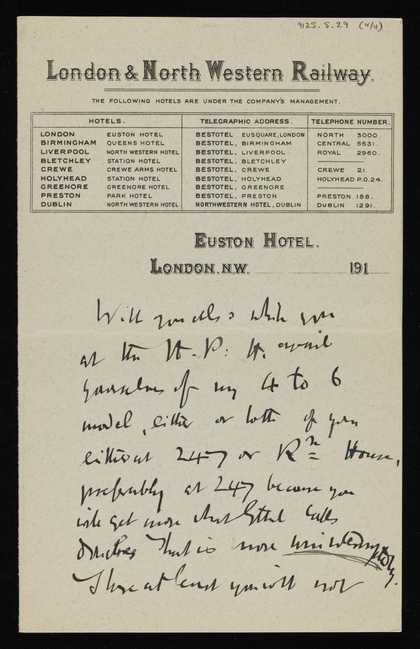 9125.5.29 (4/11)
London & North Western Railway.
THE FOLLOWING HOTELS ARE UNDER THE COMPANY'S MANAGEMENT.
HOTELS. TELEGRAPHIC ADDRESS. TELEPHONE NUMBER.
LONDON EUSTON HOTEL BESTOTEL, EUSQUARE, LONDON NORTH 3000
BIRMINGHAM QUEENS HOTEL BESTOTEL, BIRMINGHAM CENTRAL 5631.
LIVERPOOL NORTH WESTERN HOTEL BESTOTEL, LIVERPOOL ROYAL 2960.
BLETCHLEY STATION HOTEL BESTOTEL, BLETCHLEY
CREWE CREWE ARMS HOTEL BESTOTEL, CREWE CREWE 21.
HOLYHEAD STATION HOTEL BESTOTEL, HOLYHEAD HOLYHEAD P.O.24.
GREENORE GREENORE HOTEL BESTOTEL, GREENORE
PRESTON PARK HOTEL BESTOTEL, PRESTON PRESTON 188.
DUBLIN NORTH WESTERN HOTEL NORTHWESTERN HOTEL, DUBLIN DUBLIN 1291.
EUSTON HOTEL.
LONDON. N.W. 191
Will you also while you
at the H. P. H. avail
yourselves of my 4 to 6
model, either or both of you
either at 247 or Rn House,
preferably at 247 because you
will get more what Ethel calls
That is more
I hope at least you will not